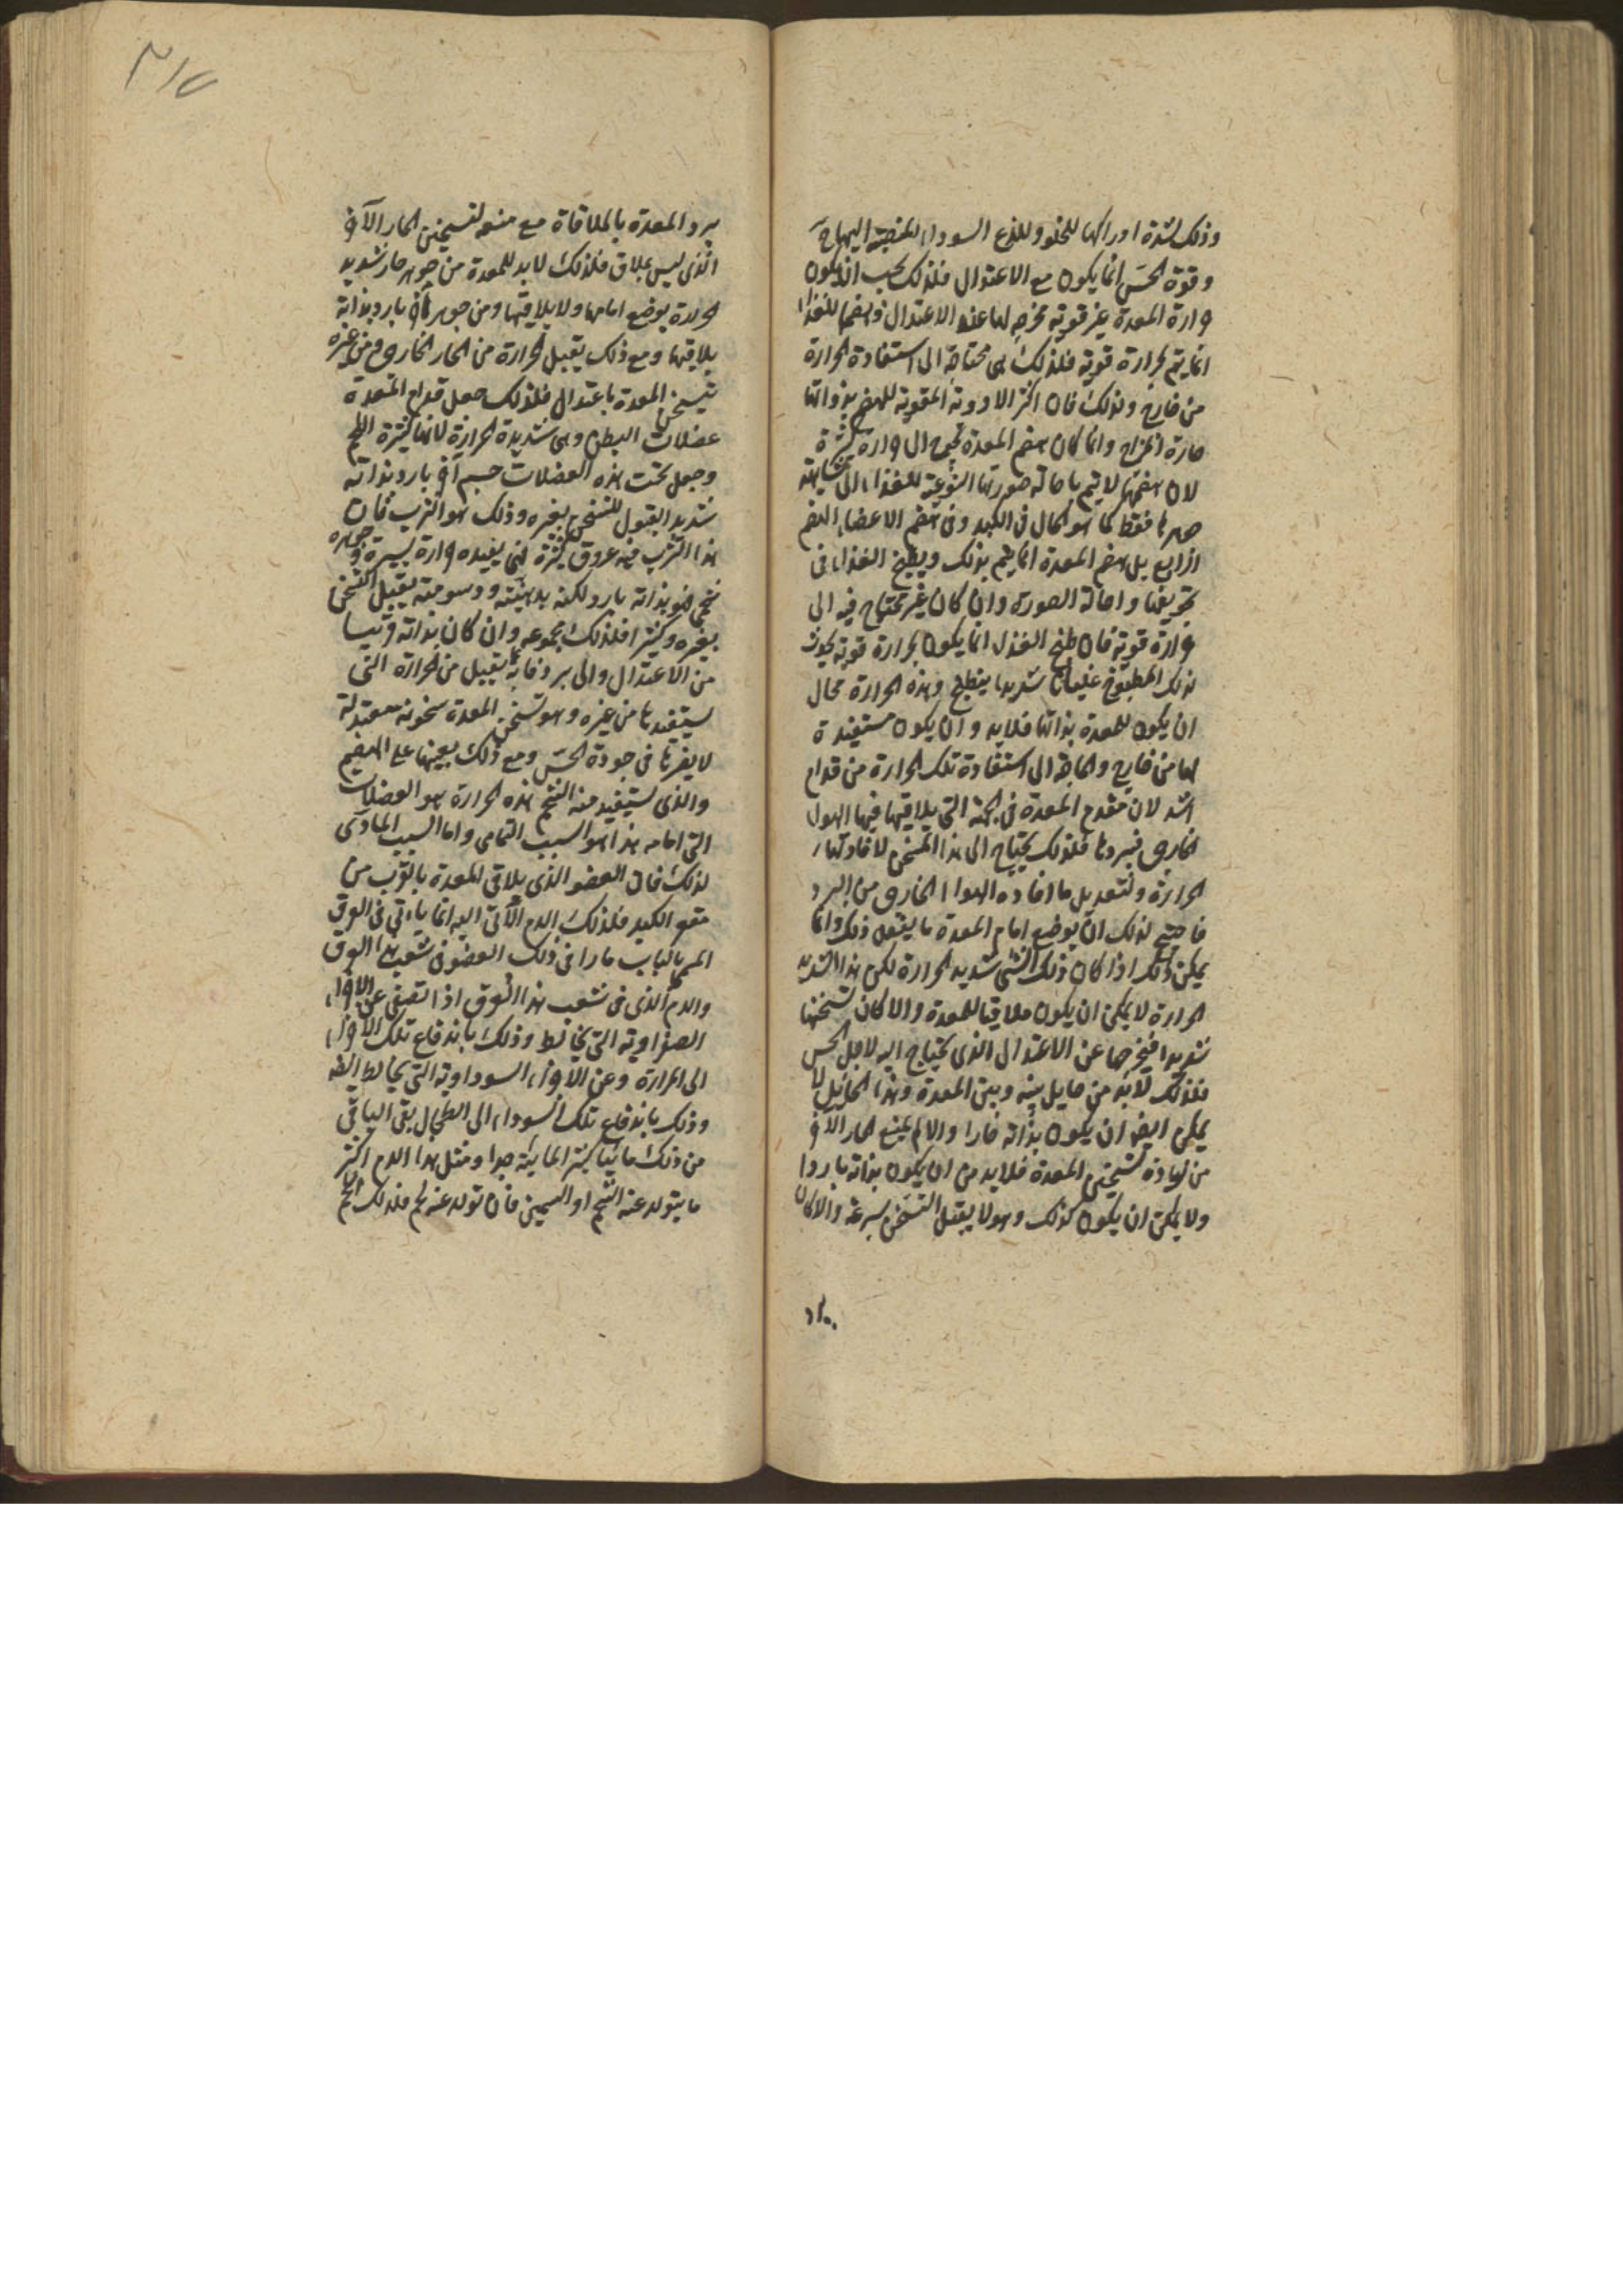 وذلك لشدة ادراكها للخلو وللذع السوداء المنصبة اليها ح
وقوة الحس انما يكون مع الاعتدال فلذلك يجب ان يكون
حرارة المعدة غير قوية مخرجه لها عند الاعتدال وهضمها للغذاء
انما يتم بحرارة قوية فلذلك هى محتاجة الى استفادة الحرارة
من خارج ولذلك فان اكثر الادوية المقوية للهضم بذواتها
حارة المزاج وانما كان هضم المعدة يحوج الى حرارة كثيرة
لان هضمها لا يتم باحالة صورتها النوعية للغذاء الى مشابهة
جوهرها فقط كما هو الحال فى الكبد وفى هضم الاعضاء الهضم
الرابع بل هضم المعدة انما يتم بذلك ويطبخ الغذاء فى
تجويفها واحالة الصورة وان كان غير محتاج فيه الى
حرارة قوية فان طبخ الغذاء انما يكون بحرارة قوية يحدث
لذلك المطبوخ غليانا شديدا ينطبخ وهذه الحرارة محال
ان يكون للمعدة بذاتها فلابد وان يكون مستفيدة
لها من خارج والحاجة الى استفادة تلك الحرارة من قدام
اشد لان مقدم المعدة فى الجهة التى يلاقيها فيها الهواء
الخارجى فيبردها فلذلك يحتاج الى هذا المسخن لافادتها
الحرارة ولتعديل ما افاده الهواء الخارجى من البرد
فاحتيج لذلك ان يوضع امام المعدة ما يفعل ذلك وانما
يمكن ذلك اذا كان ذلك الشى شديد الحرارة لكن هذا الشديد
الحرارة لا يمكن ان يكون ملاقيا للمعدة والا كان تسخنها
شديدا فيخرجها عن الاعتدال الذى يحتاج اليه لاجل الحس
فلذلك لابد من حايل بينه وبين المعدة وهذا الحائل لا
يمكن ايضا ان يكون بذاته حارا والا لم يمنع الحار الآخر
من زيادة تسخين المعدة فلابد من ان يكون بذاته باردا
ولا يمكن ان يكون كذلك وهو لا يقبل التسخن بسرعة والا كان
٣١٧
يبرد المعدة بالملاقاة مع منعه لتسخين الحار الآخر
الذى ليس بملاق فلذلك لابد للمعدة من جوهر حار شديد
الحرارة يوضع امامها ولا يلاقيها ومن جوهر آخر بارد بذاته
يلاقيها ومع ذلك يقبل الحرارة من الحار الخارجى ومن غيره
يسخن المعدة باعتدال فلذلك جعل قدام المعدة
عضلات البطن وهى شديدة الحرارة لانها كثيرة اللحم
وجعل تحت هذه العضلات جسم آخر بارد بذاته
شديد القبول للتسخن بغيره وذلك هو الثرب فان
هذا الثرب فيه عروق كثيرة لكى يفيده حرارة يسيرة وجوهره
شحمى فهو بذاته بارد لكنه بدهنيته ودسومته يقبل التسخن
بغيره وكثيرا فلذلك مجموعه وان كان بذاته قريبا
من الاعتدال والى برد ما فانه يقبل من الحرارة التى
يستفيدها من غيره وهو تسخن المعدة سخونة معتدلة
لا يضرها فى جودة الحس ومع ذلك يعينها على الهضم
والذى يستفيد منه الشحم هذه الحرارة هو العضلات
التى امامه هذا هو السبب التمامى واما السبب المادى
لذلك فان العضو الذى يلاقى المعدة بالقرب من
مقعر الكبد فلذلك الدم الآتى اليه انما ياءتى فى العرق
المسمى بالباب مارا فى ذلك العضو فى شعب هذا العرق
والدم الذى فى شعب هذا العرق اذا تصفى عن الاجزاء
الصفراوية التى يخالطه وذلك باندفاع تلك الاجزاء
الى المرارة وعن الاجزاء السوداوية التى يخالطه ايضا
وذلك باندفاع تلك السوداء الى الطحال بقى الباقى
من ذلك مائيا كثير المائية جدا ومثل هذا الدم اكثر
ما يتولد عنه الشحم او السمين فان تولد عنه لحم فذلك اللحم